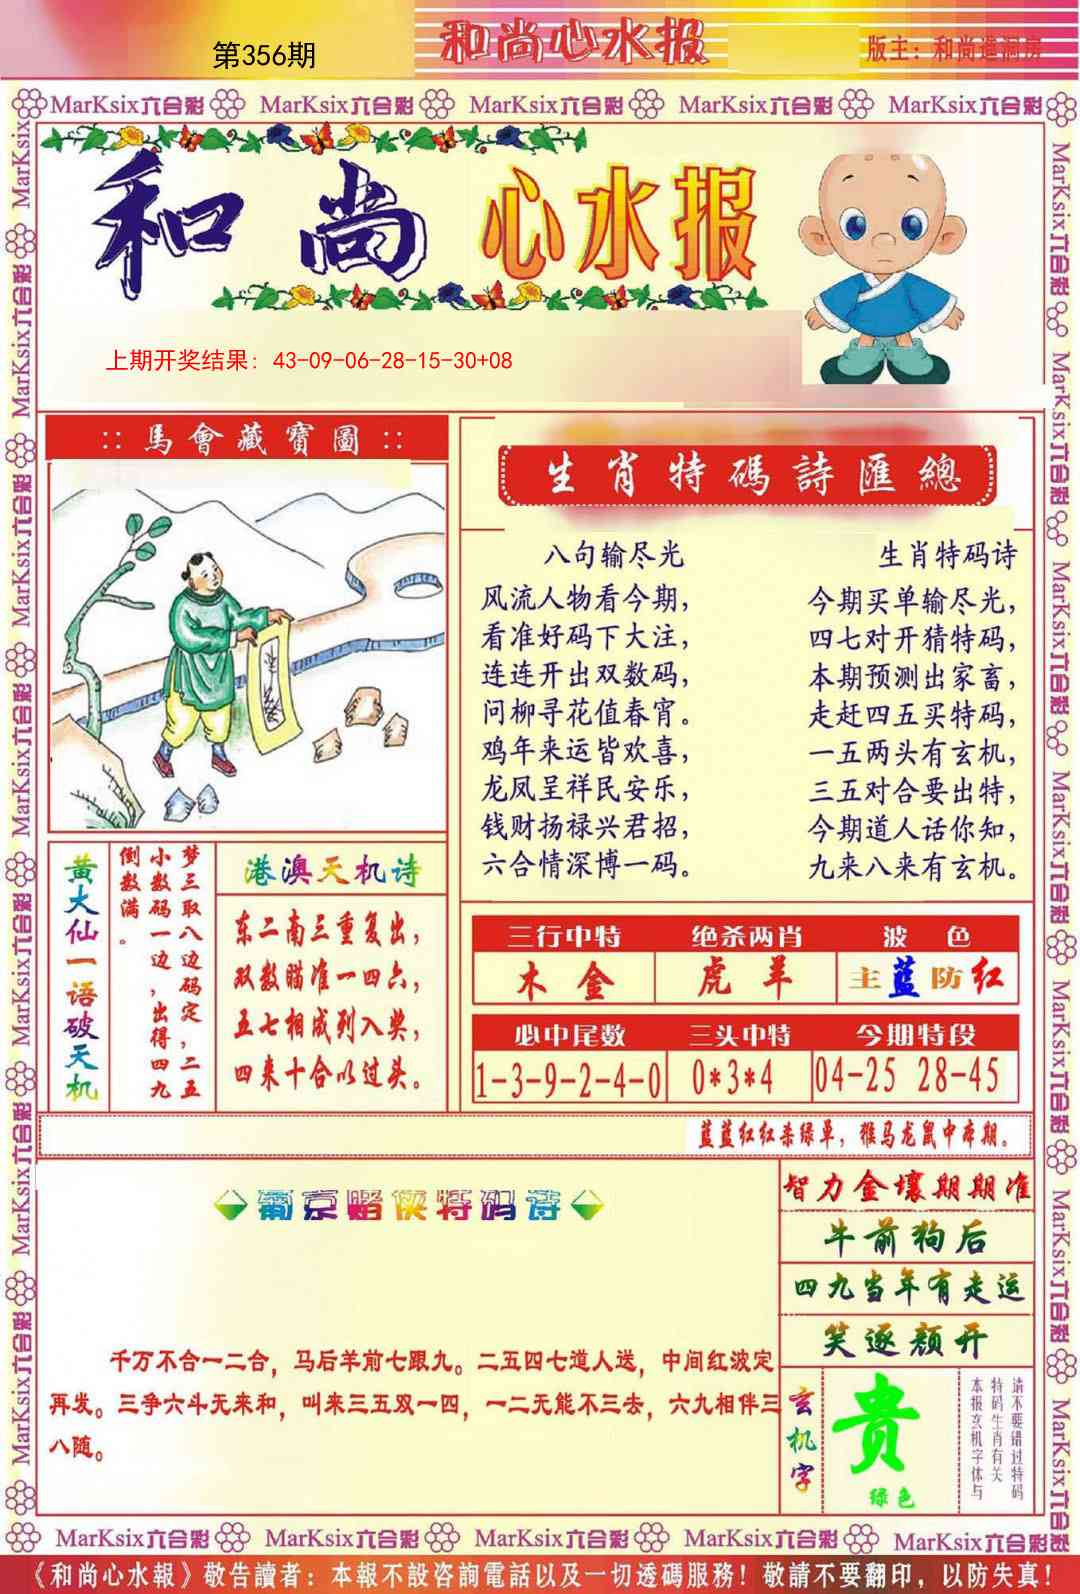 第356期
和尚心水报
版主：和尚造洞房
MarKsix六合彩 MarKsix六合彩 MarKsix六合彩 MarKsix六合彩 MarKsix六合彩
和尚心水报
上期开奖结果: 43-09-06-28-15-30+08
:: 馬會藏寶圖 ::
生肖特碼詩匯總
八句输尽光
风流人物看今期，
看准好码下大注，
连连开出双数码，
问柳寻花值春宵。
鸡年来运皆欢喜，
龙凤呈祥民安乐，
钱财扬禄兴君招，
六合情深博一码。
生肖特码诗
今期买单输尽光，
四七对开猜特码，
本期预测出家畜，
走赶四五买特码，
一五两头有玄机，
三五对合要出特，
今期道人话你知，
九来八来有玄机。
黄大仙一语破天机
梦三取八边码定，二五
小数码一边，出得四九
倒数满。
港澳天机诗
东二南三重复出，
双数瞄准一四六，
五七相成列入奖，
四来十合以过头。
三行中特 绝杀两肖 波色
木金 虎羊 主蓝防红
必中尾数 三头中特 今期特段
1-3-9-2-4-0 0*3*4 04-25 28-45
蓝蓝红红杀绿单，猴马龙鼠中本期。
葡京赌侠特码诗
千万不合一二合，马后羊前七跟九。二五四七道人送，中间红波定
再发。三争六斗无来和，叫来三五双一四，一二无能不三去，六九相伴三
八随。
智力金壤期期准
牛前狗后
四九当年有走运
笑逐颜开
玄机字
贵
绿色
请不要错过特码
特码生肖有关
本报玄机字体与
MarKsix六合彩 MarKsix六合彩 MarKsix六合彩 MarKsix六合彩 MarKsix六合彩
《和尚心水報》敬告讀者：本報不設咨詢電話以及一切透碼服務！敬請不要翻印，以防失真！